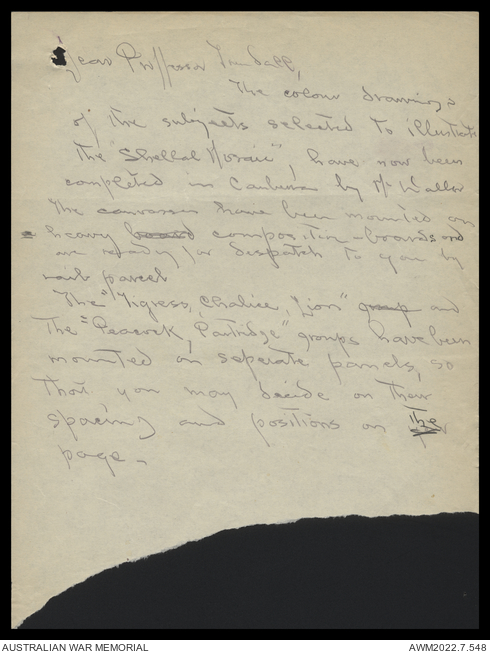 Dear Professor Trendall,
The colour drawings
of the subjects selected to illustrate
the "Shellal Mosaic", have now been
completed in Canberra by Mr Waller
The canvasses have been mounted on
heavy board composition-boards and
are ready for despatch to you by
rail parcel
The "Tigress, Chalice, Lion" group and
The "Peacock, Partridge" groups have been
mounted on seperate panels, so
that you may decide on their
spacing and positions on the
page.
AUSTRALIAN WAR MEMORIAL
AWM2022.7.548